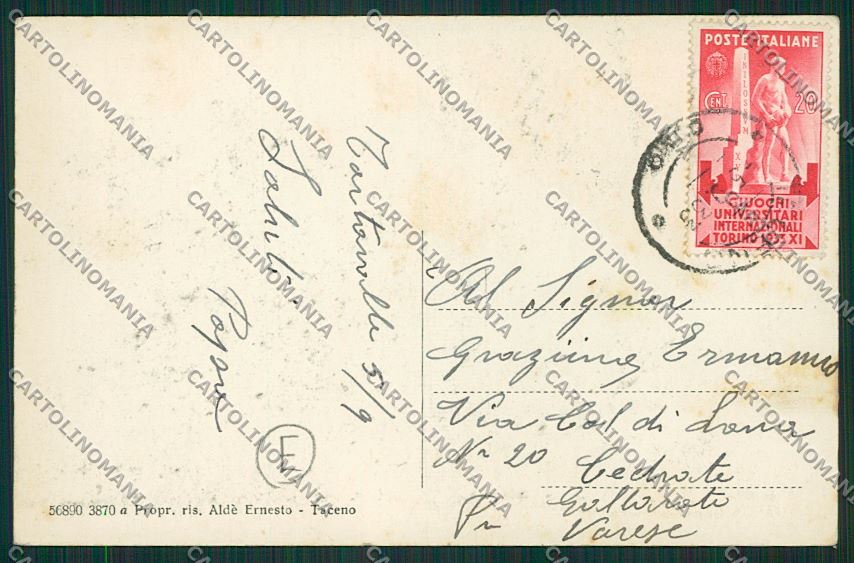 Tartavalle 5/9
Saluti
56890 3870 a Propr. ris. Aldè Ernesto - Taceno
POSTE ITALIANE
CENT 20
GIUOCHI
UNIVERSITARI
INTERNAZIONALI
TORINO 1933 XI
Al Signor
Ermanno
Via Col di Lana
Nr 20 Cedrate
Gallarate
Pr Varese
CARTOLINOMANIA